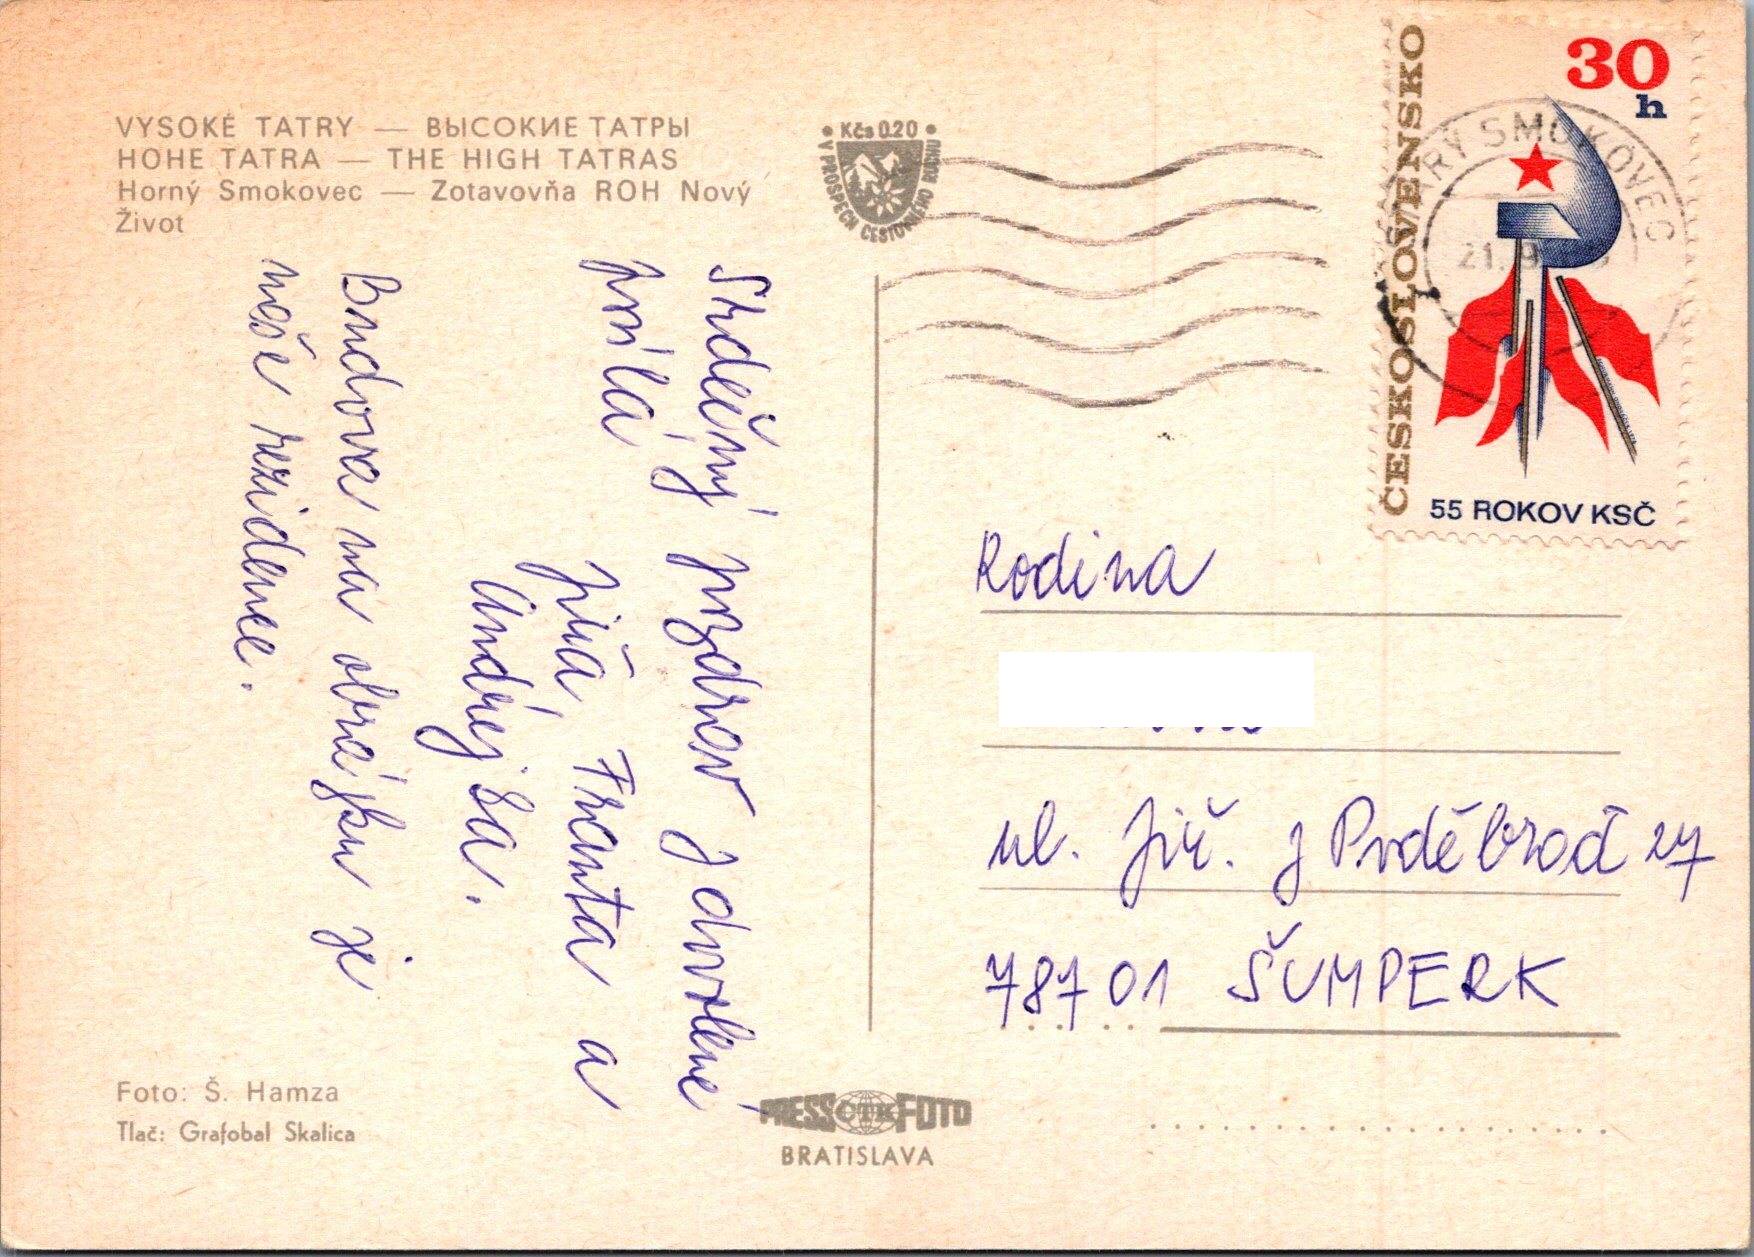 VYSOKÉ TATRY — ВЫСОКИЕ ТАТРЫ
HOHE TATRA — THE HIGH TATRAS
Horný Smokovec — Zotavovňa ROH Nový
Život
• Kčs 0.20 •
V PROSPECH CESTOVNÉHO RUCHU
ČESKOSLOVENSKO
30
h
55 ROKOV KSČ
STARÝ SMOKOVEC
21. 9.
Srdečný pozdrav z dovolené
posílá Jiřa, Franta a
Andrejka.
Budova na obrázku je
naše rezidence.
Rodina
ul. Jiř. z Poděbrad 27
787 01 ŠUMPERK
Foto: Š. Hamza
Tlač: Grafobal Skalica
PRESS ČTK FOTO
BRATISLAVA